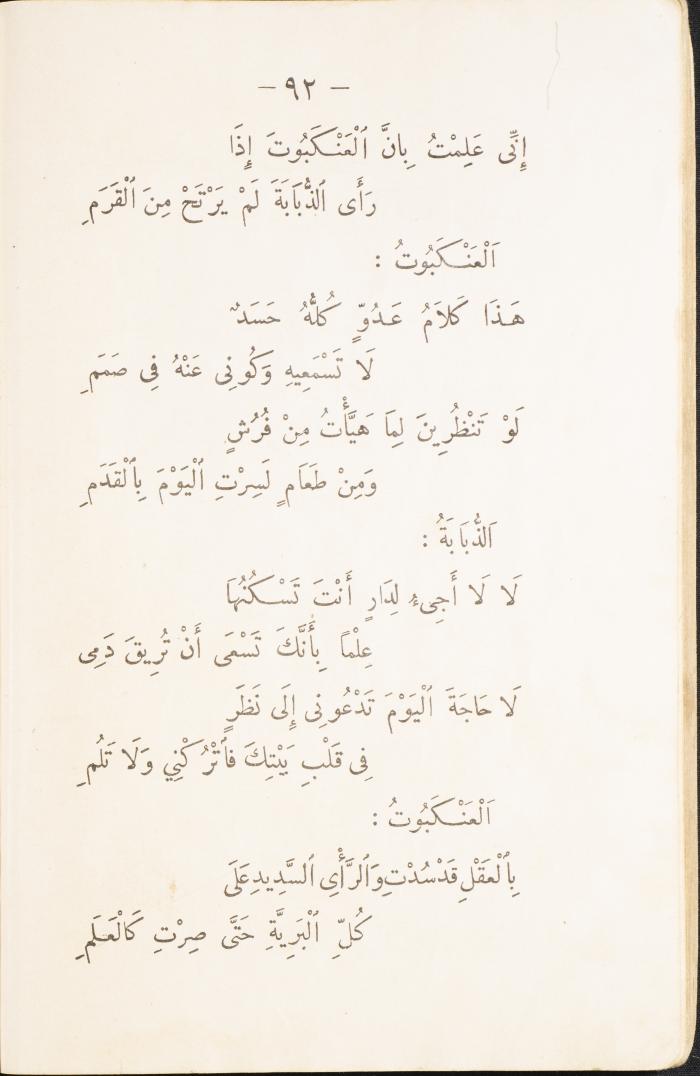 - ٩٢ -
إِنِّى عَلِمْتُ بِانَّ ٱلْعَنْكَبُوتَ إِذَا
رَأَى ٱلذُّبَابَةَ لَمْ يَرْتَحْ مِنَ ٱلْقَرَمِ
اَلْعَنْكَبُوتُ :
هَذَا كَلَامُ عَدُوٍّ كُلُّهُ حَسَدٌ
لَا تَسْمَعِيهِ وَكُونِى عَنْهُ فِى صَمَمِ
لَوْ تَنْظُرِينَ لِمَا هَيَّأْتُ مِنْ فُرُشٍ
وَمِنْ طَعَامٍ لَسِرْتِ ٱلْيَوْمَ بِٱلْقَدَمِ
اَلذُّبَابَةُ :
لَا لَا أَجِىءُ لِدَارٍ أَنْتَ تَسْكُنُهَا
عِلْماً بِأَنَّكَ تَسْعَى أَنْ تُرِيقَ دَمِى
لَا حَاجَةَ ٱلْيَوْمَ تَدْعُونِى إِلَى نَظَرٍ
فِى قَلْبِ بَيْتِكَ فَٱتْرُكْنِي وَلَا تَلُمِ
اَلْعَنْكَبُوتُ :
بِٱلْعَقْلِ قَدْ سُدْتِ وَٱلرَّأْىِ ٱلسَّدِيدِ عَلَى
كُلِّ ٱلْبَرِيَّةِ حَتَّى صِرْتِ كَالْعَلَمِ